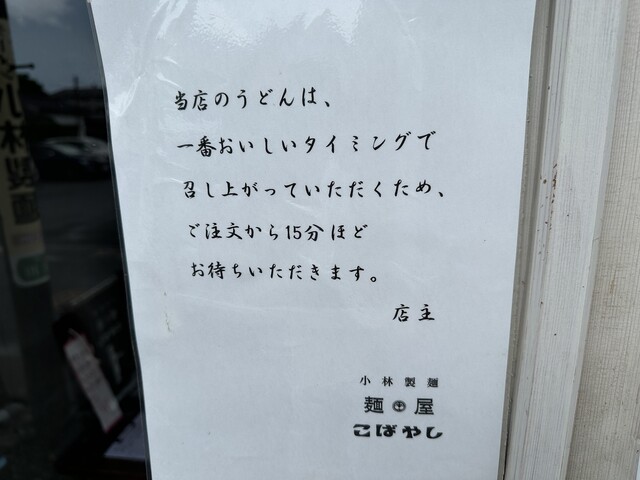 当店のうどんは、
一番おいしいタイミングで
召し上がっていただくため、
ご注文から15分ほど
お待ちいただきます。
店主
小林製麺
麺屋
こばやし